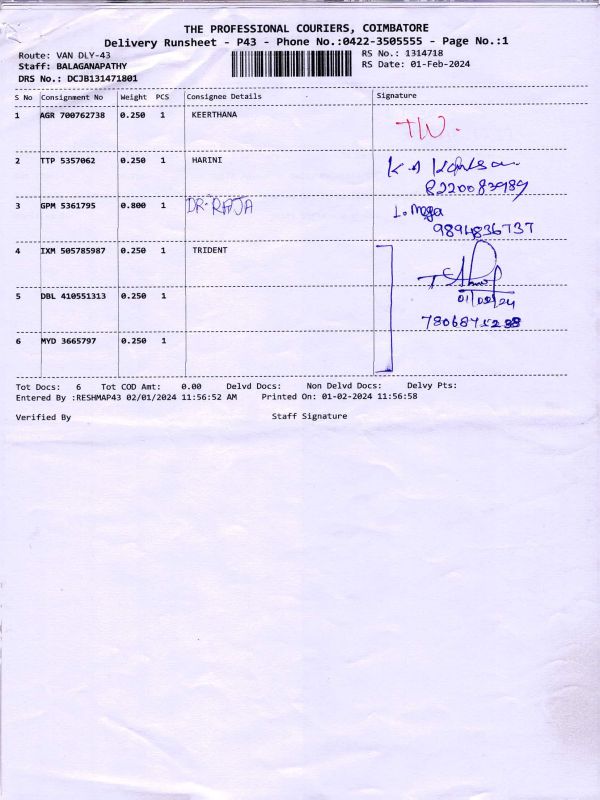 THE PROFESSIONAL COURIERS, COIMBATORE
Delivery Runsheet - P43 - Phone No.:0422-3505555 - Page No.:1
Route: VAN DLY-43
RS No.: 1314718
Staff: BALAGANAPATHY
RS Date: 01-Feb-2024
DRS No.: DCJB131471801
S No Consignment No Weight PCS Consignee Details Signature
1 AGR 700762738 0.250 1 KEERTHANA
2 TTP 5357062 0.250 1 HARINI
3 GPM 5361795 0.800 1 DR. RAJA
L. Mega
9894836737
4 IXM 505785987 0.250 1 TRIDENT
01/02/24
5 DBL 410551313 0.250 1
6 MYD 3665797 0.250 1
Tot Docs: 6 Tot COD Amt: 0.00 Delvd Docs: Non Delvd Docs: Delvy Pts:
Entered By :RESHMAP43 02/01/2024 11:56:52 AM Printed On: 01-02-2024 11:56:58
Verified By Staff Signature